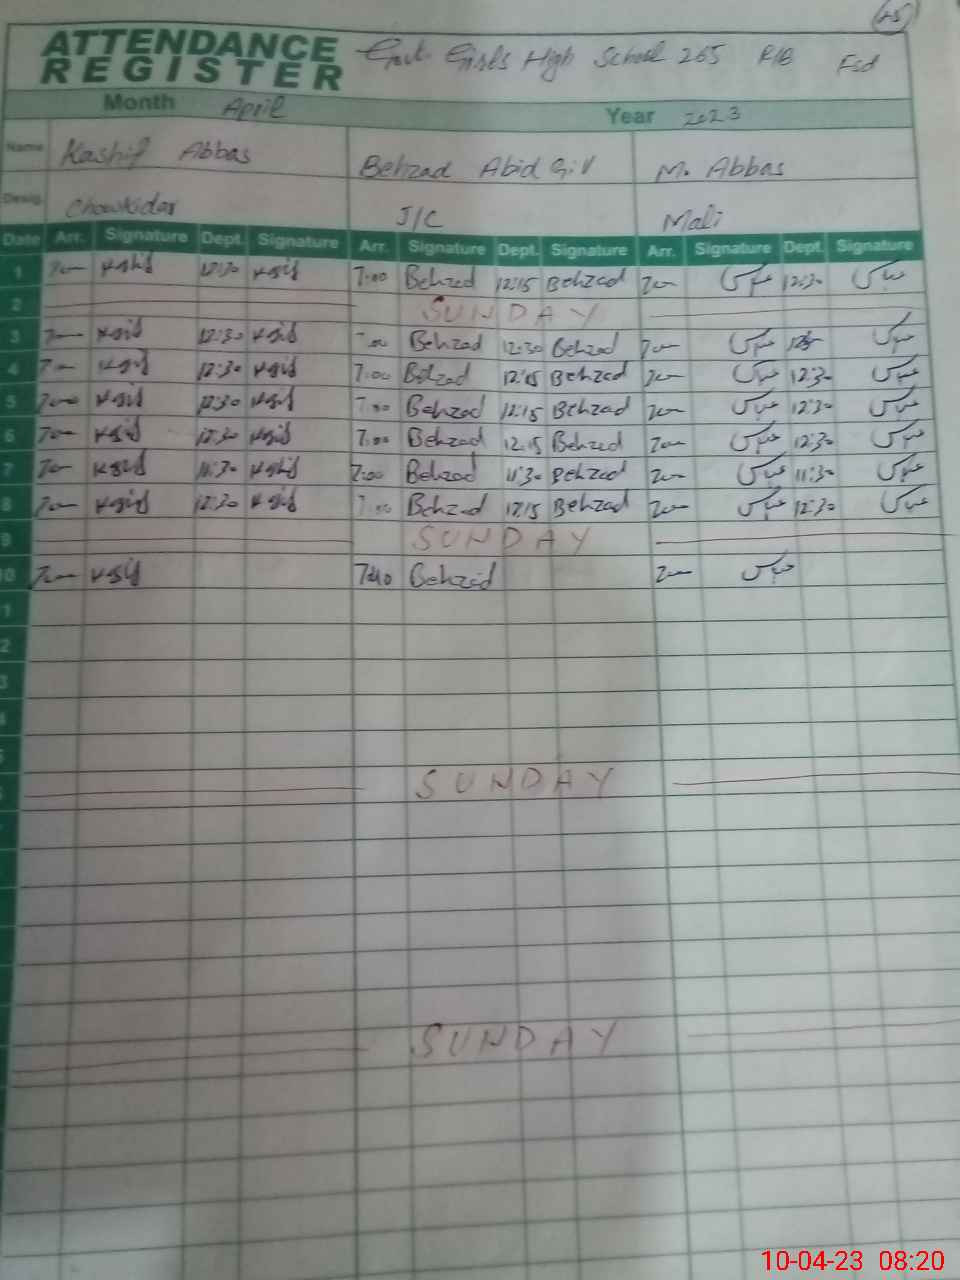 25
ATTENDANCE REGISTER Govt. Girls High School 265 R/B Fsd
Month April Year 2023
Name Kashif Abbas Behzad Abid Gill M. Abbas
Desig. Chowkidar J/C Mali
Date Arr. Signature Dept. Signature Arr. Signature Dept. Signature Arr. Signature Dept. Signature
1 7:00 Kashif 12:30 Kashif 7:00 Behzad 12:15 Behzad 7:00 عباس 12:30 عباس
2 SUNDAY
3 7:00 Kashif 12:30 Kashif 7:00 Behzad 12:30 Behzad 7:00 عباس عباس
4 7:00 Kashif 12:30 Kashif 7:00 Behzad 12:15 Behzad 7:00 عباس 12:30 عباس
5 7:00 Kashif 12:30 Kashif 7:00 Behzad 12:15 Behzad 7:00 عباس 12:30 عباس
6 7:00 Kashif 12:30 Kashif 7:00 Behzad 12:15 Behzad 7:00 عباس 12:30 عباس
7 7:00 Kashif 11:30 Kashif 7:00 Behzad 11:30 Behzad 7:00 عباس 11:30 عباس
8 7:00 Kashif 12:30 Kashif 7:00 Behzad 12:15 Behzad 7:00 عباس 12:30 عباس
9 SUNDAY
10 7:00 Kashif 7:40 Behzad 7:00 عباس
1
2
3
4
5
SUNDAY
SUNDAY
10-04-23 08:20